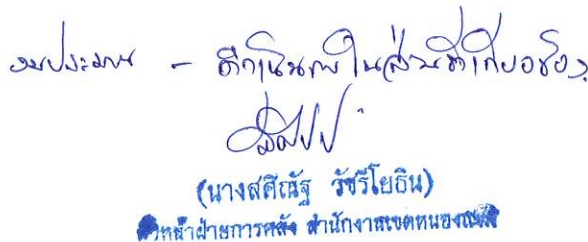 งบประมาณ - ดำเนินการในส่วนที่เกี่ยวข้อง
(นางสศิณัฐ วัชรีโยธิน)
หัวหน้าฝ่ายการคลัง สำนักงานเขตหนองแขม